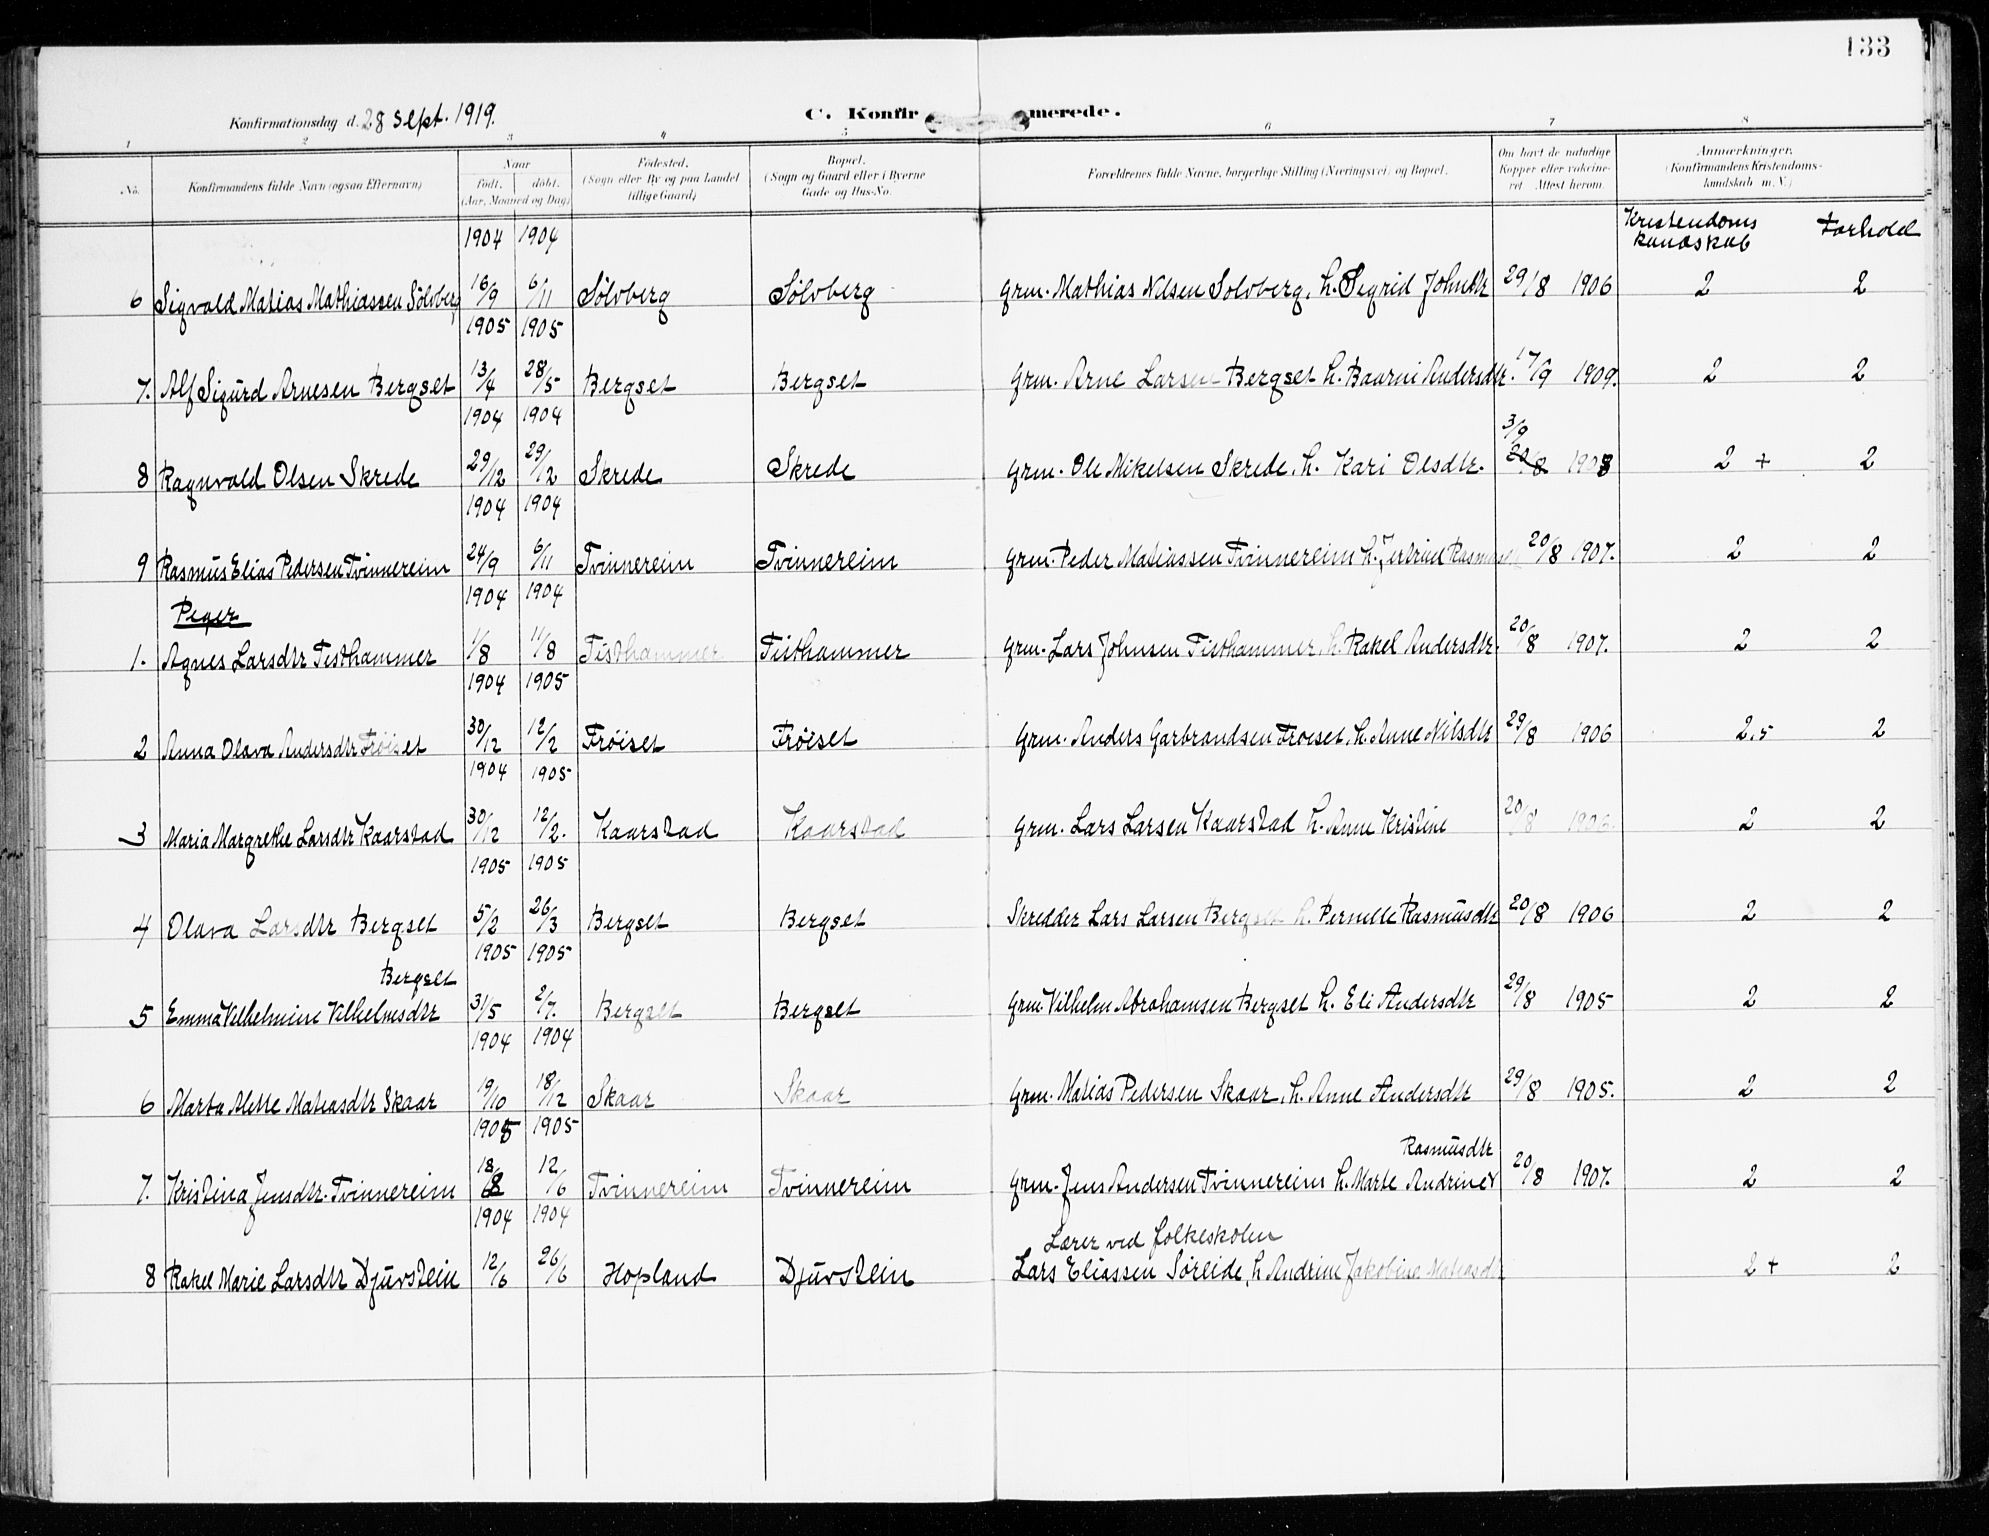 133
Konfirmationsdag d. 28 sept. 1919.
C. Konfirmerede.
1 2 3 4 5 6 7 8
No. Konfirmandens fulde Navn (ogsaa Efternavn)
Naar
født. døbt.
(Aar, Maaned og Dag)
Fødested.
(Sogn eller By og paa Landet
tillige Gaard)
Bopæl.
(Sogn og Gaard eller i Byerne
Gade og Hus-No.
Forældrenes fulde Navne, borgerlige Stilling (Næringsvei) og Bopæl.
Om havt de naturlige
Kopper eller vakcine-
ret. Attest herom.
Anmærkninger.
(Konfirmandens Kristendoms-
kundskab m. V.)
Kristendoms kundskab Forhold
1904 1904
6 Sigvald Matias Mathiassen Sölvberg 16/9 6/11 Sölvberg Sölvberg Grm. Mathias Nilsen Solvberg, h. Sigrid Johnsdtr 29/8 1906 2 2
1905 1905
7. Alf Sigurd Arnesen Bergset 13/4 28/5 Bergset Bergset Grm. Arne Larsen Bergset h. Baarni Andersdtr. 17/9 1909. 2 2
1904 1904
3/9
8 Ragnvald Olsen Skrede 29/12 29/12 Skrede Skrede Grm. Ole Mikelsen Skrede, h. Kari Olsdtr. 20/8 1908 2 + 2
1904 1904
9 Rasmus Elias Pedersen Tvinnereim 24/9 6/11 Tvinnereim Tvinnereim Grm. Peder Matiassen Tvinnereim h. Jertrud 20/8 1907. 2 2
1904 1904
Peger
1. Agnes Larsdtr Tisthammer 1/8 11/8 Tisthammer Tisthammer Grm. Lars Johnsen Tisthammer, h. Rakel Andersdtr. 20/8 1907. 2 2
1904 1905
2 Anna Olava Andersdtr Fröiset 30/12 12/2 Fröiset Fröiset Grm. Anders Garbrandsen Froiset, h. Anne Nilsdtr 29/8 1906 2,5 2
1904 1905
3 Maria Margrethe Larsdtr Kaarstad 30/12 12/2. Kaarstad Kaarstad Grm. Lars Larsen Kaarstad h. Anne Kristine 20/8 1906. 2 2
1905 1905
4 Olava Larsdtr Bergset 5/2 26/3 Bergset Bergset Skredder Lars Larsen Bergset h. Pernille Rasmusdtr 20/8 1906 2 2
1905 1905
Bergset
5 Emma Vilhelmine Vilhelmsdtr 31/5 2/7. Bergset Bergset Grm. Vilhelm Abrahamsen Bergset h. Eli Andersdtr 29/8 1905 2 2
1904 1904
6 Marta Mette Matiasdtr Skaar 19/10 18/12 Skaar Skaar Grm. Matias Pedersen Skaar, h. Anne Andersdtr 29/8 1905. 2 2
1905 1905
Rasmusdtr
7. Kristina Jensdtr. Tvinnereim 18/ 12/6 Tvinnereim Tvinnereim Grm. Jens Andersen Tvinnereim h. Marte Andrine 20/8 1907. 2 2
1904 1904
Lærer ved folkeskolen
8 Rakel Marie Larsdtr Djuvstein 12/6 26/6 Hopland Djuvstein Lars Eliassen Söreide, h Andrine Jakobine Matiasdtr 2 + 2